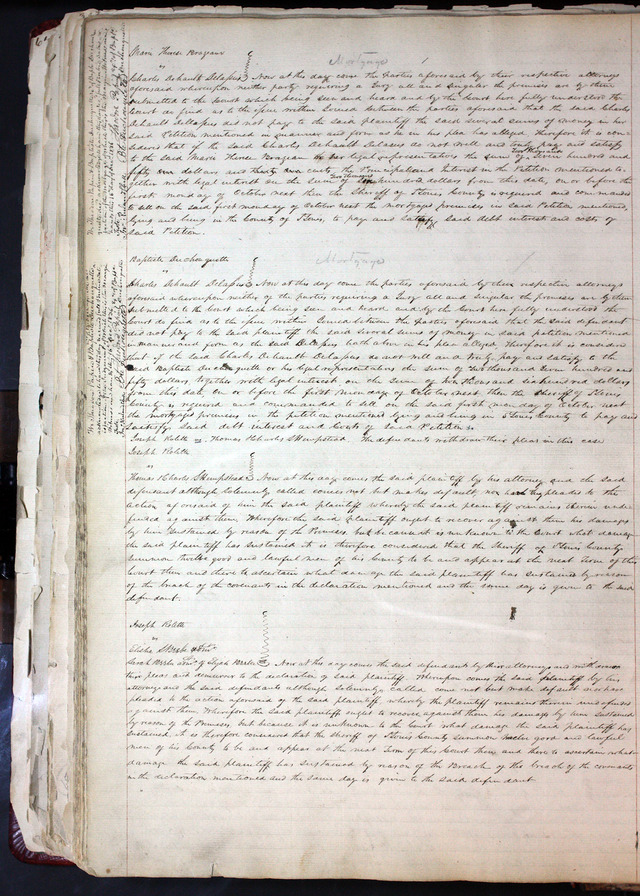 Marie Therese Brazeau
vs Mortgage
Charles Dehault Delassus Now at this day come the Parties aforesaid by their respective attorneys
aforesaid whereupon neither party requiring a Jury all and singular the premises are by them
submitted to the Court which being seen and heard and by the Court here fully understood the
Court do find as to the issue within Joined between the parties aforesaid that the said Charles
Dehault Delassus did not pay to the said plaintiff the said several sums of money in her
said Petition mentioned in manner and form as he in his plea has alleged therefore it is con-
sidered that if the said Charles Dehault Delassus do not well and truly pay and satisfy
to the said Marie Therese Brazeau or her legal representatives the sum of Two thousand Seven hundred and
fifty one dollars and thirty cents, the Principal and Interest in the Petition mentioned to-
gether with legal interest on the sum of Two thousand hundred dollars from this date, on or before the
first monday of October next then the Sheriff of St Louis County is required and commanded
to sell on the said first monday of October next the mortgaged premises in said Petition mentioned,
lying and being in the County of St Louis, to pay and satisfy said debt interest and costs of
said Petition.
Baptiste Duchouquette
vs Mortgage
Charles Dehault Delassus Now at this day come the parties aforesaid by their respective attorneys
aforesaid whereupon neither of the parties requiring a Jury all and singular the premises are by them
submitted to the Court which being seen and heard and by the Court here fully understood the
Court do find as to the issue within Joined between the Parties aforesaid that the said defendant
did not pay to the said plaintiff the said several sums of money in said petition mentioned
in manner and form as the said Delassus hath above in his plea alleged Therefore it is considered
that if the said Charles Dehault Delassus do not well and truly pay and satisfy to the
said Baptiste Duchouquette or his legal representatives the sum of Two thousand Seven hundred and
fifty dollars together with legal interest on the sum of two thousand six hundred dollars
from this date, on or before the first monday of October next then the Sheriff of St Louis
County is required and commanded to sell on the said first monday of October next
the mortgaged premises in the petition mentioned lying and being in St Louis County to pay and
satisfy said debt interest and Costs of said Petition.
Joseph Rolette vs Thomas & Charles S Hempstead The defendants withdraw their pleas in this case
Joseph Rolette
vs
Thomas & Charles S Hempstead Now at this day comes the said plaintiff by his attorney and the said
defendant although solemnly called comes not but makes default, nor hath they pleaded to the
action aforesaid of him the said plaintiff whereby the said plaintiff remains therein unde-
fended against them, Wherefore the said plaintiff ought to recover against them his damages
by him sustained by reason of the Premises, but because it is unknown to the Court what damage
the said plaintiff has sustained it is therefore considered that the Sheriff of St Louis County
summon twelve good and lawful men of his County to be and appear at the next Term of this
Court then and there to ascertain what damage the said plaintiff has sustained by reason
of the breach of the covenants in the declaration mentioned and the same day is given to the said
defendant.
Joseph Rolette
vs
Sarah Admr of Elijah Now at this day comes the said defendants by their attorneys and withdraws
their pleas and demurrer to the declaration of said plaintiff. Whereupon comes the said plaintiff by his
attorney and the said defendants although solemnly called come not but make default nor have
pleaded to the action aforesaid of the said plaintiff, whereby the plaintiff remains therein undefended
against them, Wherefore the said plaintiff ought to recover against them his damages by him sustained
by reason of the Premises, but because it is unknown to the Court what damage the said plaintiff has
sustained, it is therefore considered that the sheriff of St Louis County summon twelve good and lawful
men of his County to be and appear at the next Term of this Court then and there to ascertain what
damage the said plaintiff has sustained by reason of the Breach of the breach of the covenants
in the declaration mentioned and the same day is given to the said defendant